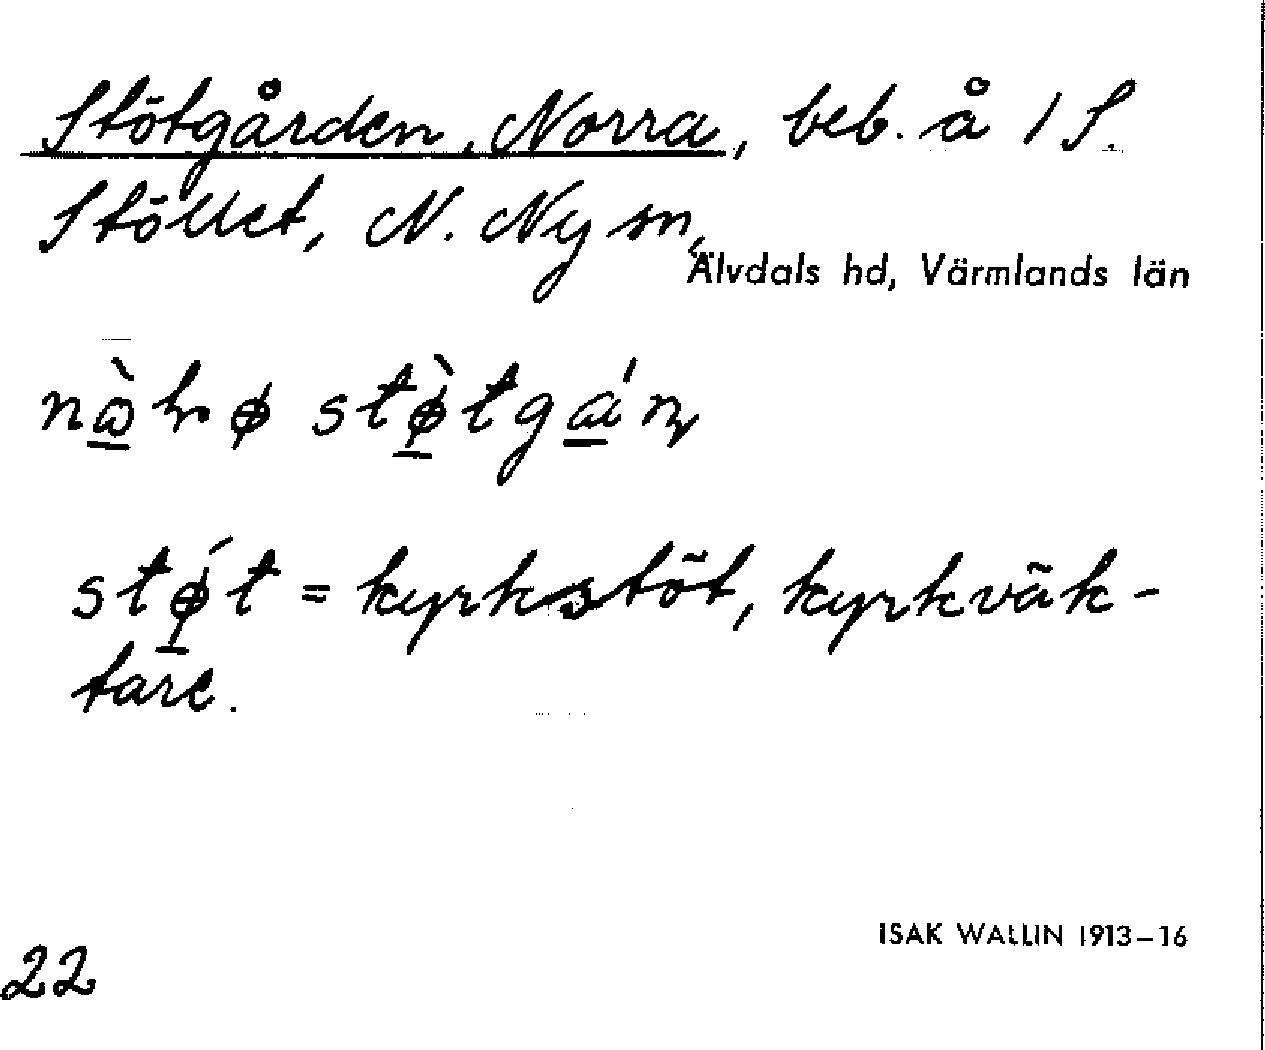 Stötgården, Norra, beb. å 1 S.
Stöllet, N. Ny sn,
Älvdals hd, Värmlands län
stǿ̱t = kyrkstöt, kyrkväk-
tare.
ISAK WALLIN 1913–16
22